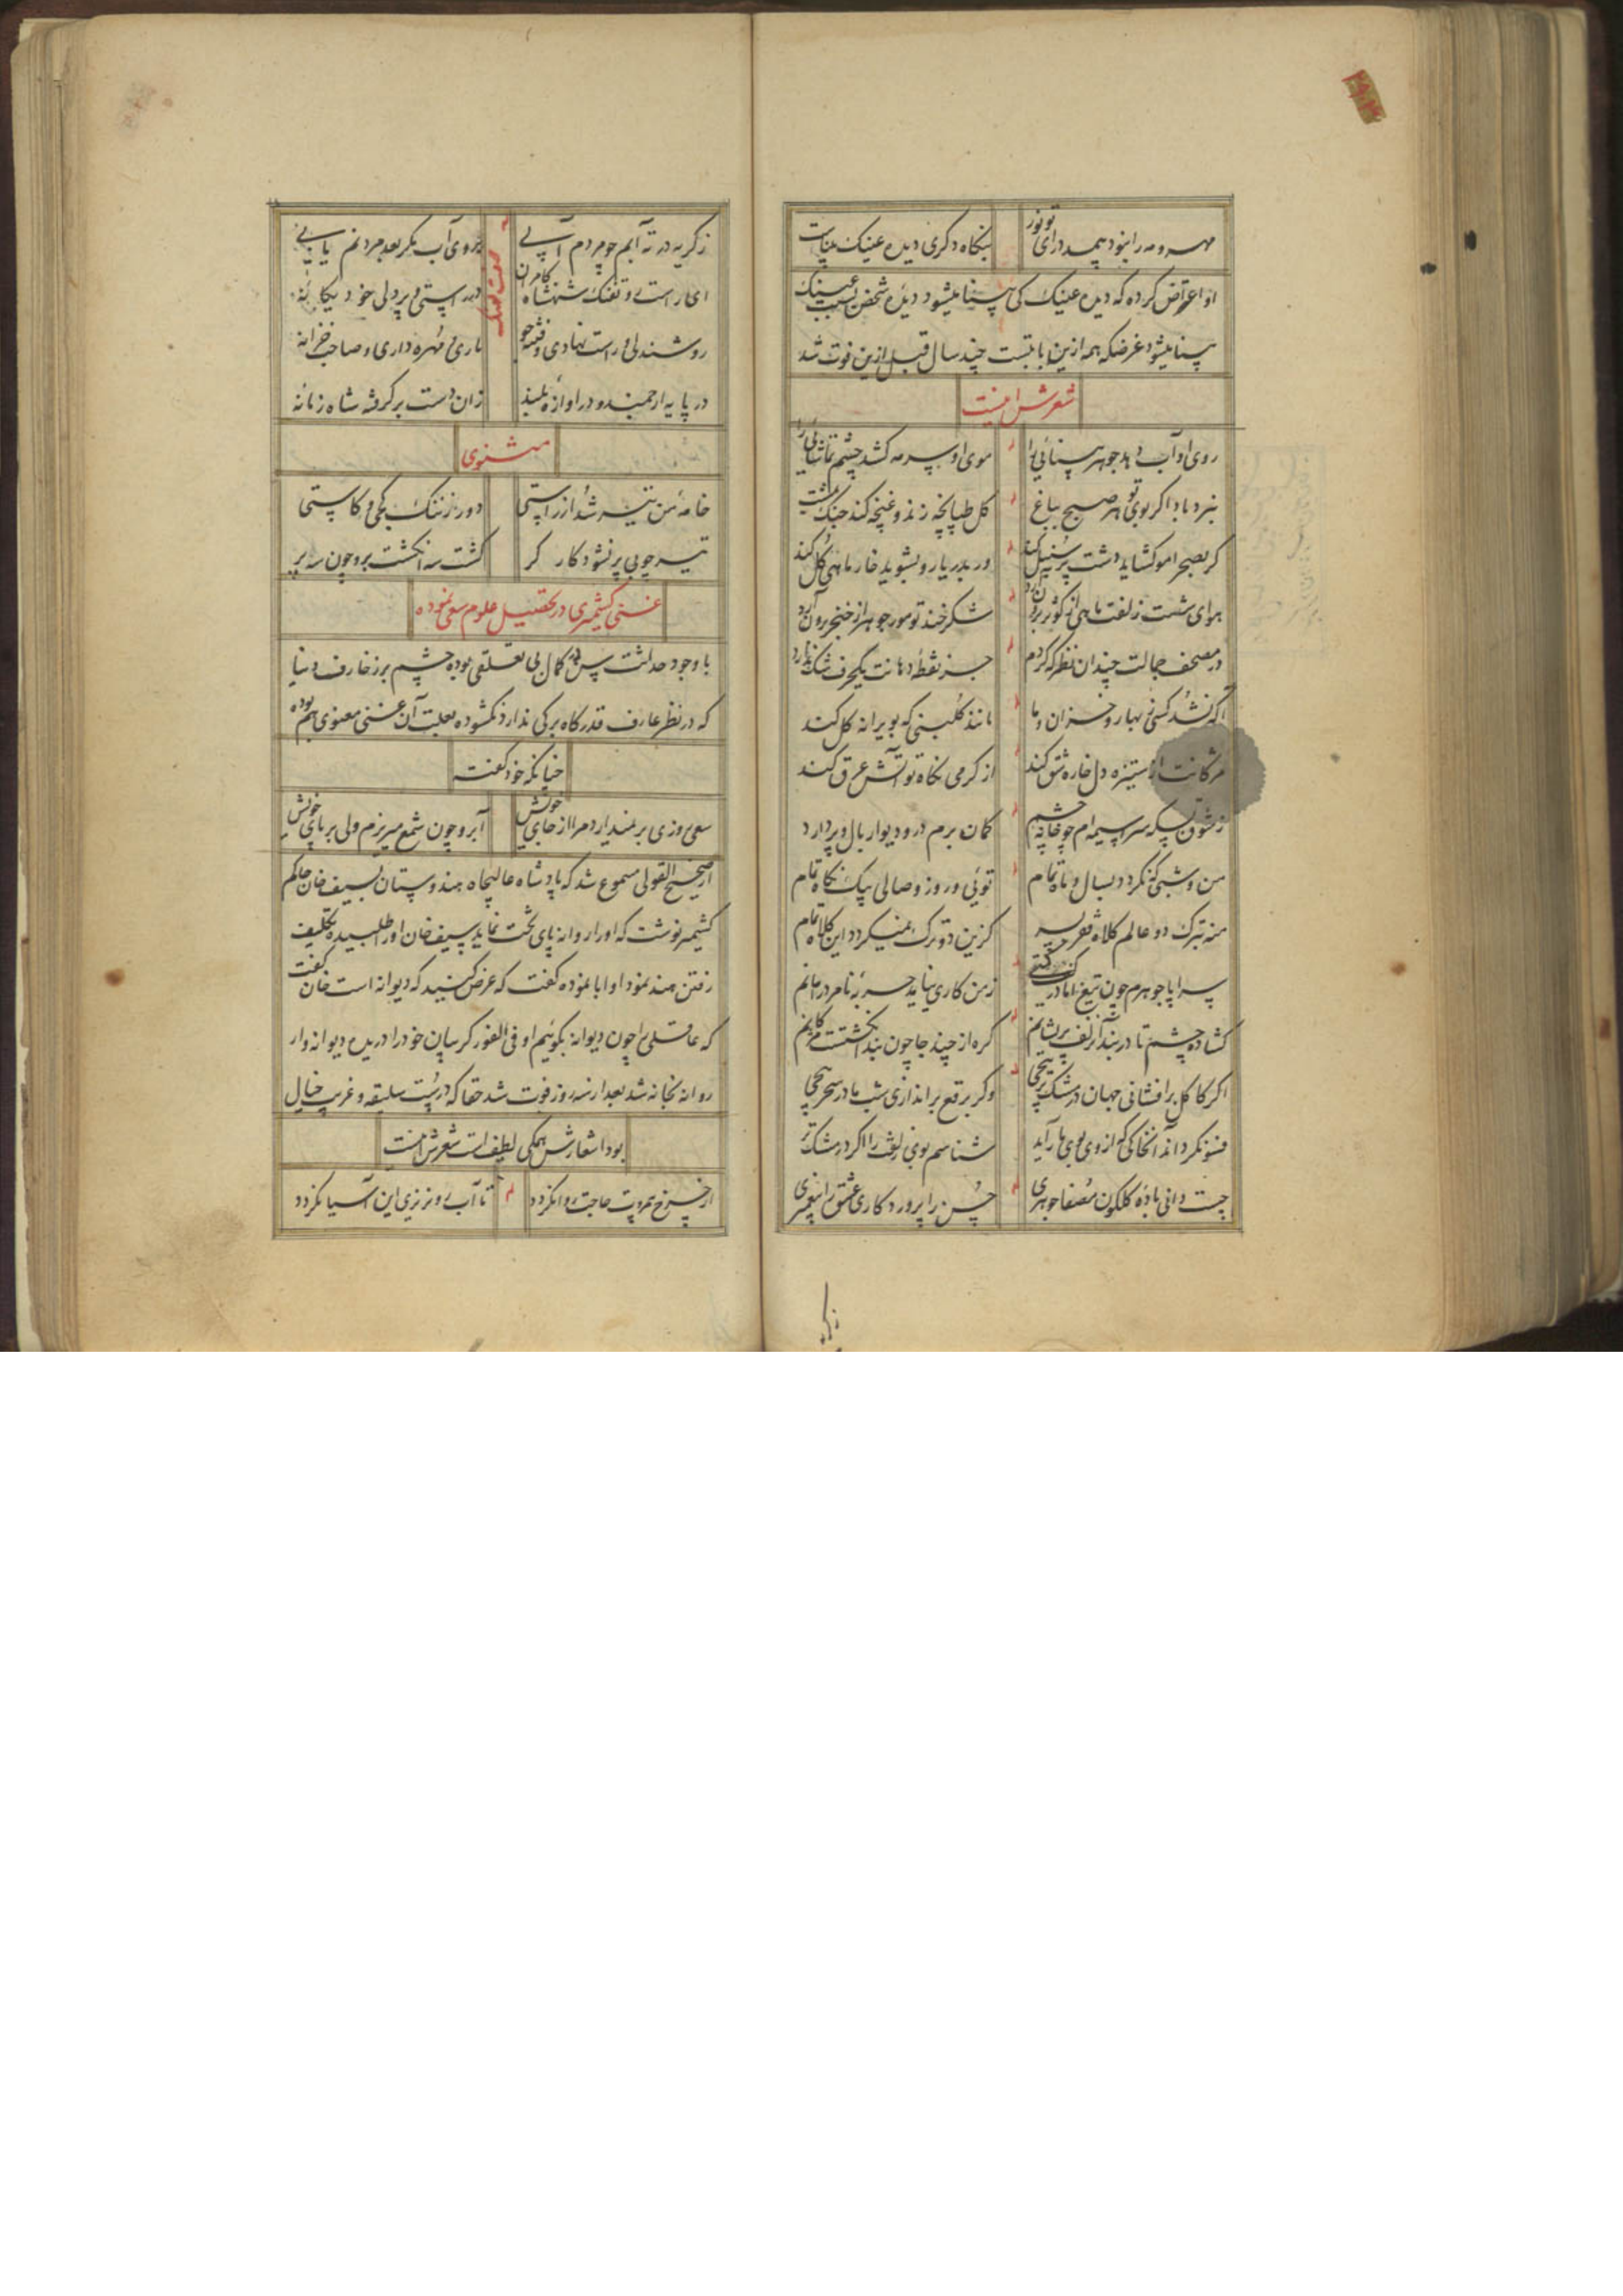 مهر و مه را نبود بیمدد رای تو نور
بنگاه دگری دیده عینک بیناست
او اعتراض کرده که دیده عینک کی بینا میشود دیده شخص بسبب عینک
بینا میشود غرضکه همه ازین بابتست چند سال قبل ازین فوت شد
شعرش اینست
روی او آب دهد جوهر بینائی را
موی او سرمه کشد چشم تماشائی را
نبرد باد اگر بوی تو هر صبح بباغ
گل طپانچه زند و غنچه کند جنگ بمشت
گر بصحرا مو گشاید دشت پر سنبل کند
ور بدریا رو بشوید خار ماهی گل کند
هوای شست زلفت ماهی از کوثر برون آرد
شکر خند تو مور جوهر از خنجر برون آرد
در مصحف جمالت چندان نظر که کردم
جز نقطه دهانت یکحرف شک ندارد
آگه نشد کسی ز بهار و خزان ما
مانند گلبنی که بویرانه گل کند
مژگانت از ستیزه دل خاره شق کند
از گرمی نگاه تو آتش عرق کند
ز شوق بسکه سراسیمه‌ام چو خانه چشم
گمان برم در و دیوار بال و پر دارد
من و شبی که نگردد بسال و ماه تمام
توئی و روز وصالی بیک نگاه تمام
منه بترک دو عالم کلاه فقر بسر
کزین دو ترک نمیگردد این کلاه تمام
سراپا جوهرم چون تیغ اما در کف گیتی
ز من کاری نیاید حربه نامرد را مانم
گشاده چشم تا در بند آن زلف پریشانم
گره از چند جا چون بند انگشتست مژگانم
اگر کاکل برافشانی جهان در مشک تر پیچی
وگر برقع براندازی شب ما در سحر پیچی
فسونگر داند آنخاکی که از وی بوی مار آید
شناسم بوی زلفت را اگر در مشک تر
چیست دانی باده گلگون مصفا جوهری
حسن را پروردگاری عشق را پیغمبری
ز گریه در ته آبم چو مردم آبی
بروی آب مگر بعد مردنم یابی
ای راست رو تفنگ شهنشاه کامران
در راستی و پر دلی خود یگانه
روشندلی و راست نهادی و فتنه جو
ماری و مهره داری و صاحب خزانه
در پایه ارجمند و در آوازه بلند
زان دست بر گرفته شاه زمانه
مثنوی
خامه من تیر شد از راستی
دور ز ننگ کجی و کاستی
تیر چو بی پر نشود کارگر
گشت سه انگشت برو چون سه پر
غنی کشمیری در تحصیل علوم سعی نموده
با وجود حداثت سن در کمال بی تعلقی بوده چشم بر زخارف دنیا
که در نظر عارف قدر کاه برگی ندارد نگشوده بعلت آن غنی معنوی هم بوده
چنانکه خود گفت
سعی روزی بر نمیدارد مرا از جای خویش
آبرو چون شمع میریزم ولی بر پای خویش
از صحیح القولی مسموع شد که پادشاه عالیجاه هندوستان بسیف خان حاکم
کشمیر نوشت که او را روانه پای تخت نماید سیف خان او را طلبیده تکلیف
رفتن هند نمود او ابا نموده گفت که عرض کنید که دیوانه است خان گفت
که عاقلی را چون دیوانه بگوئیم او فی الفور گریبان خود را دریده دیوانه وار
روانه خانه شد بعد از سه روز فوت شد حقا که درست سلیقه و غریب خیال
بود اشعارش همگی لطیف است شعرش اینست
از چرخ بی مروت حاجت روا نگردد
تا آب رو نریزی این آسیا نگردد